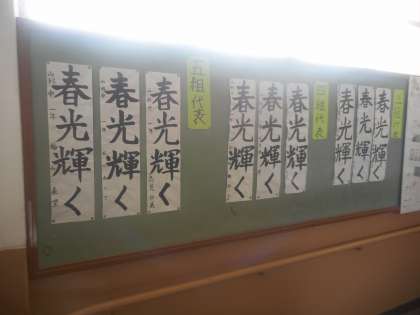 五組代表
春光輝く
春光輝く
春光輝く
春光輝く
春光輝く
春光輝く
春光輝く
春光輝く
春光輝く